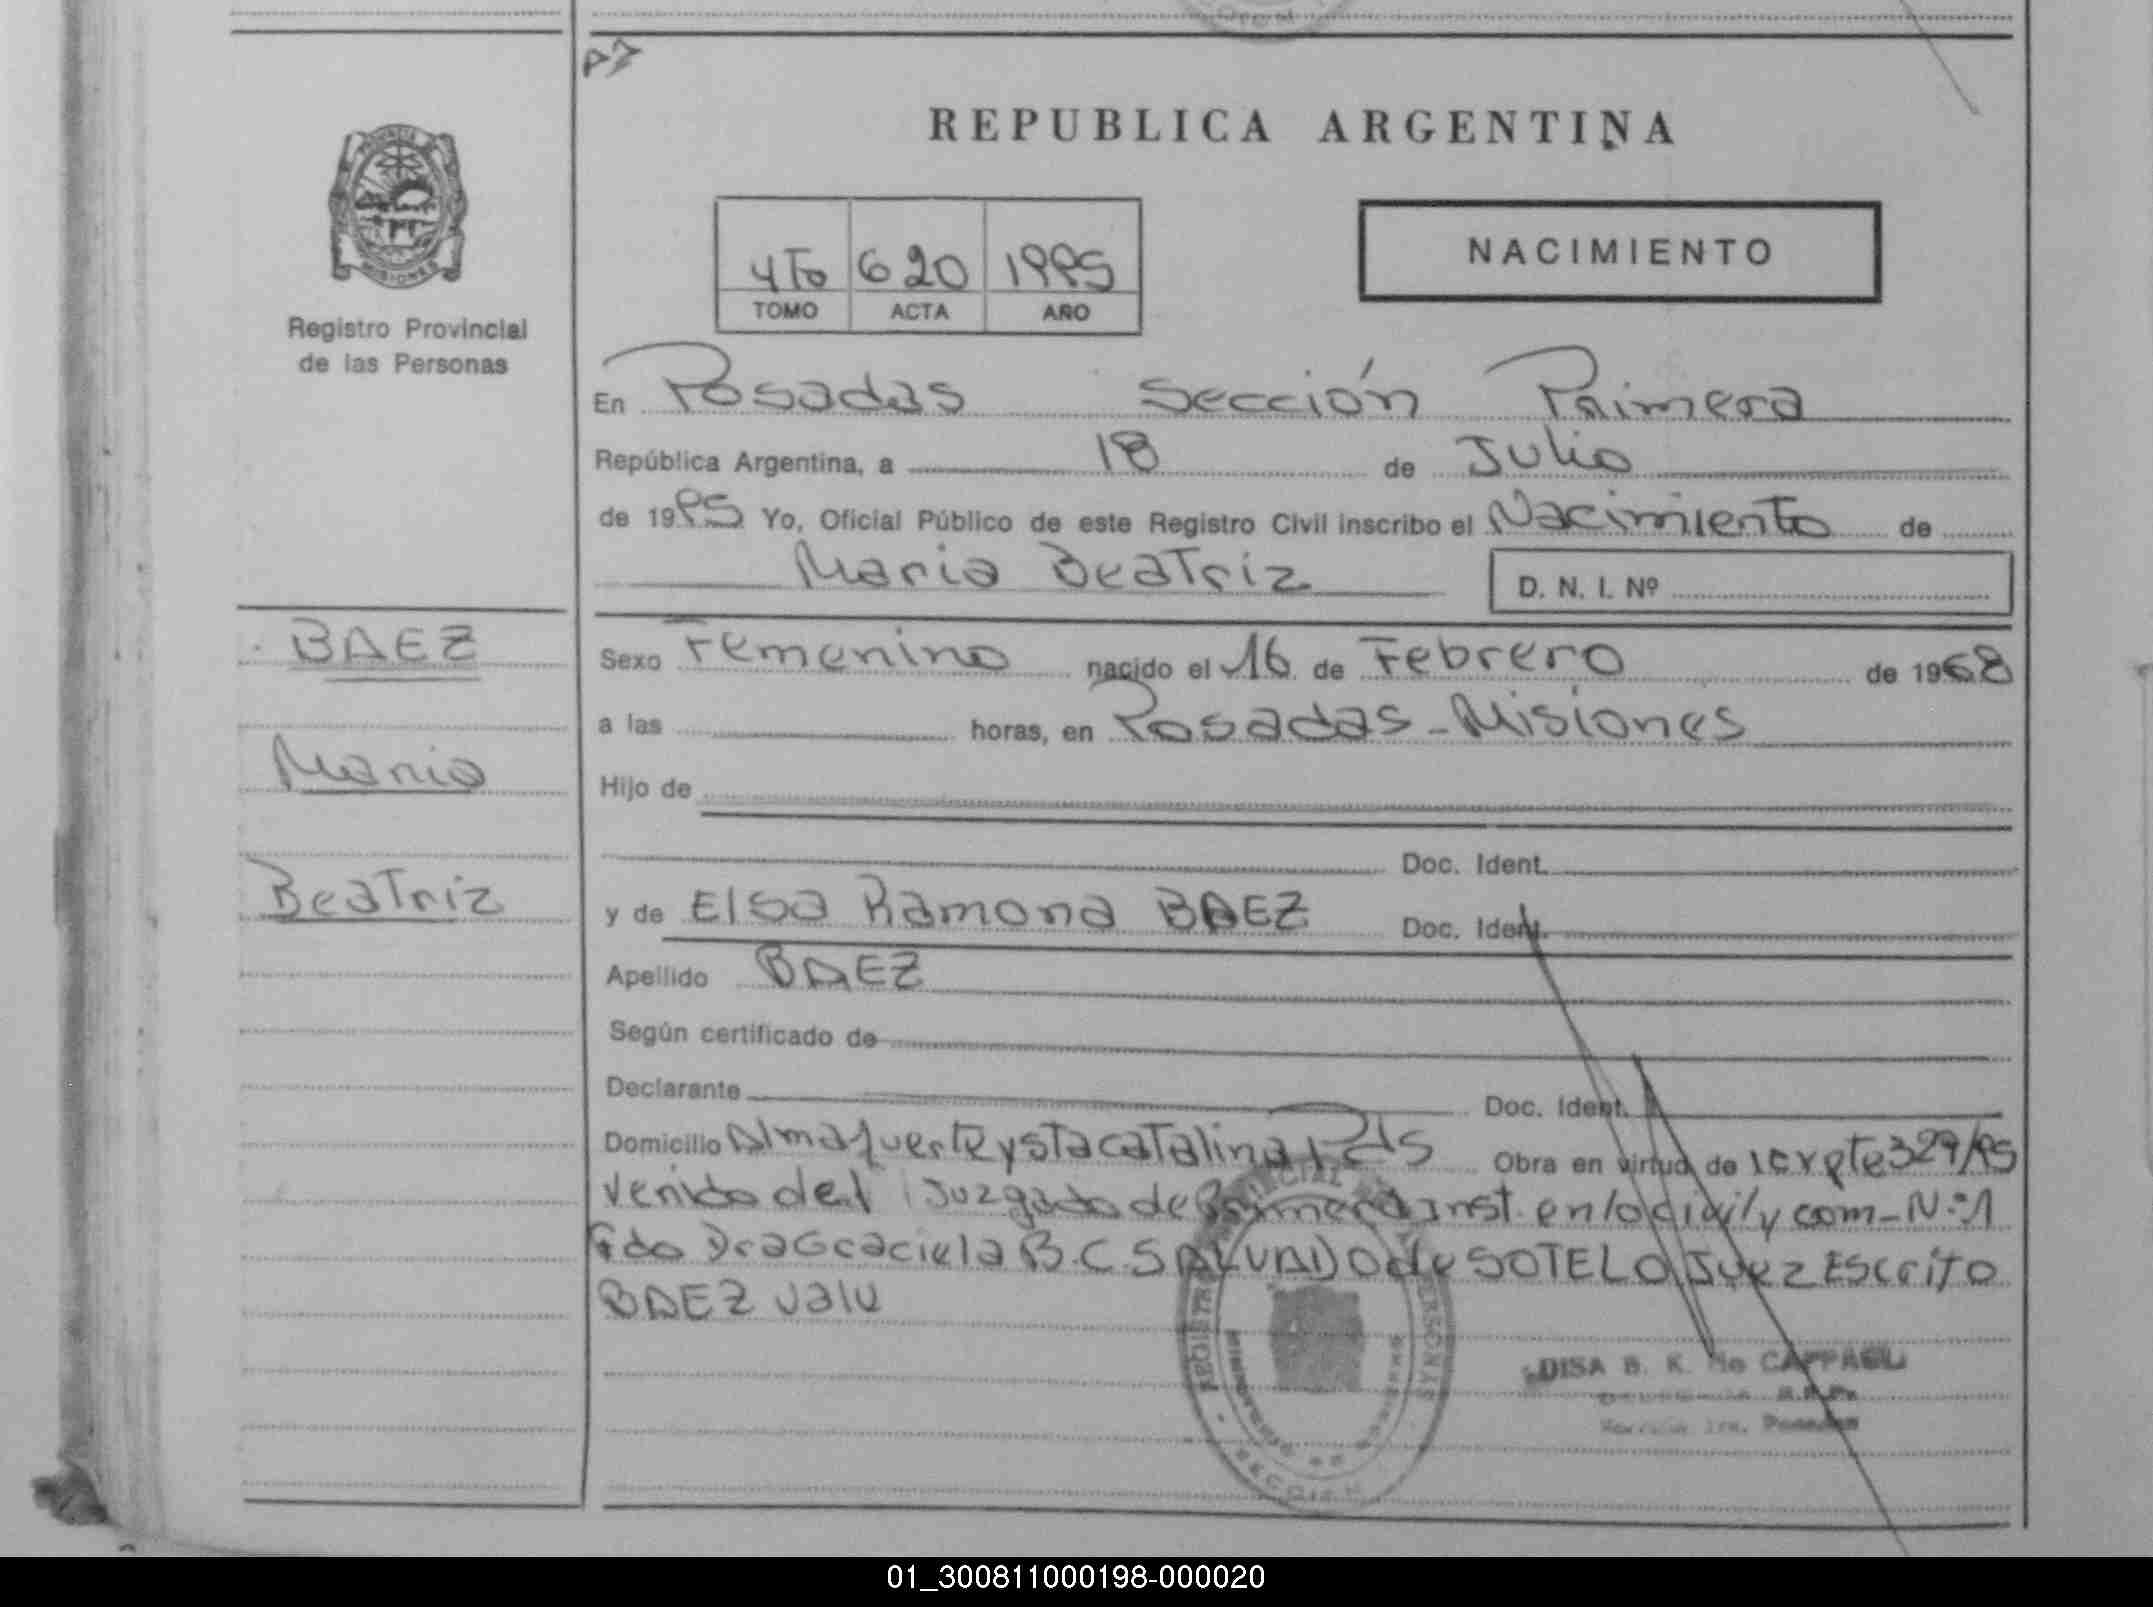 A7
REPUBLICA ARGENTINA
PROVINCIA
MISIONES
Registro Provincial
de las Personas
4To 620 1995
TOMO ACTA AÑO
NACIMIENTO
En Posadas Sección Primera
República Argentina, a 18 de Julio
de 1995 Yo, Oficial Público de este Registro Civil inscribo el Nacimiento de
Maria Beatriz D. N. I. Nº
BAEZ
Maria
Beatriz
Sexo Femenino nacido el 16 de Febrero de 1968
a las horas, en Posadas - Misiones
Hijo de
Doc. Ident.
y de Elsa Ramona BAEZ Doc. Ident.
Apellido BAEZ
Según certificado de
Declarante Doc. Ident.
Domicilio Almafuerte y sta catalina Pdas Obra en virtud de expte 329/95
venido del Juzgado de Primera inst. en lo civil y com- N:1
Fdo Dra Graciela B. C. SALVADO de SOTELO Juez Escrito
BAEZ vale
DISA B. K. de CAPPAELI
R.P.P.
Sección 1ra. Posadas
01_300811000198-000020